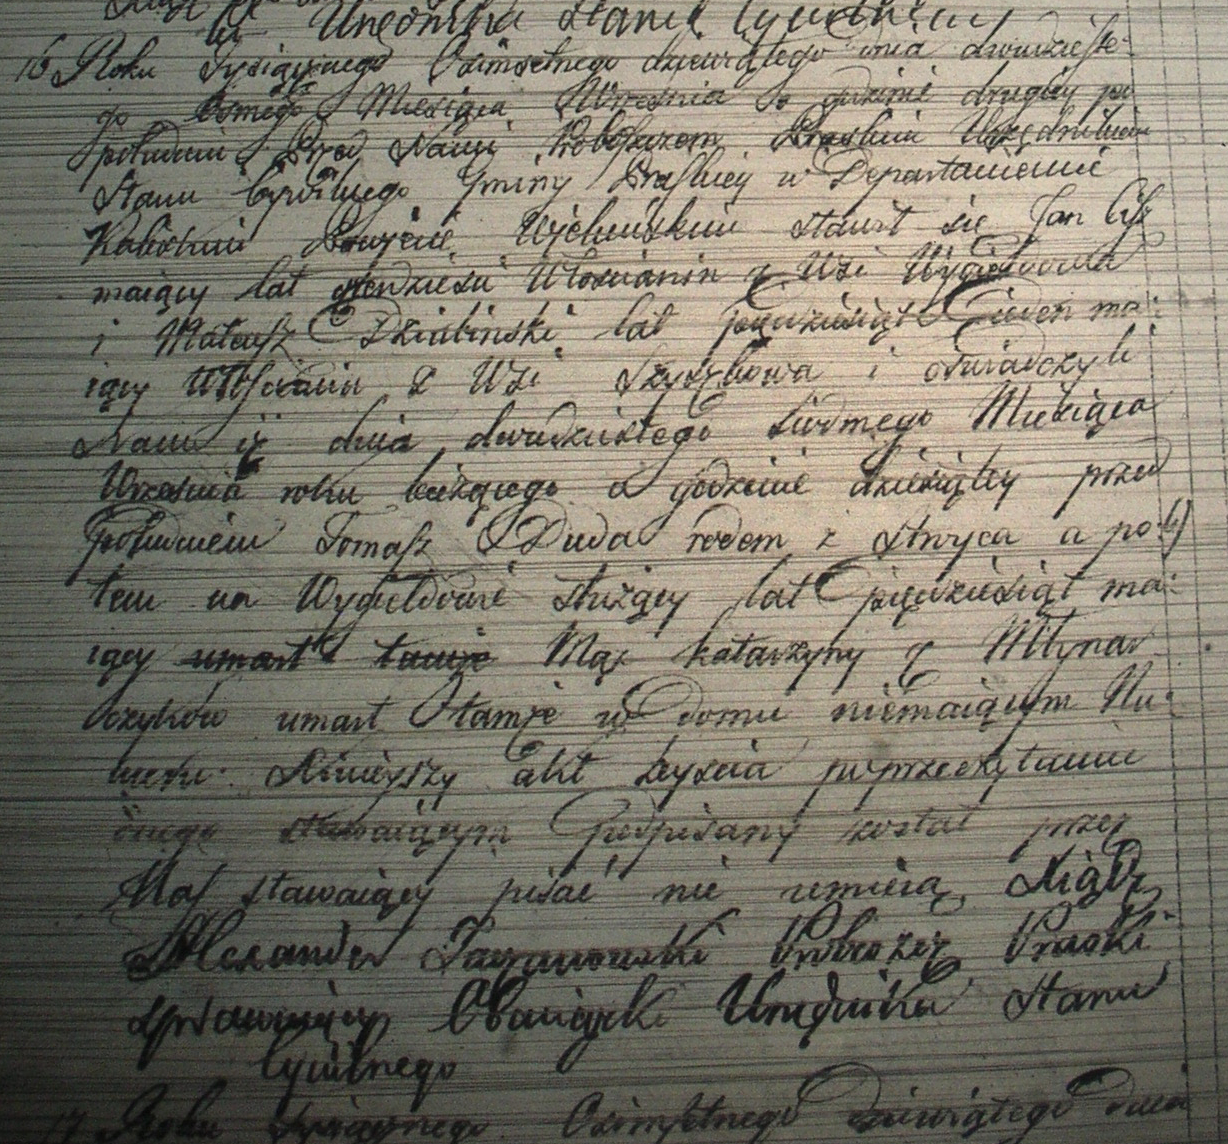 Urzędnika Stanu Cywilnego
16 Roku Tysiącznego Ośmsetnego dziewiątego dnia dwudzieste-
go osmego Miesiąca Września o godzinie drugiey po
południu Przed Nami Proboszczem Praskim Urzędnikiem
Stanu Cywilnego Gminy Praskiey w Departamencie
Kaliskim Powiecie Wieluńskim stawił się Jan
maiący lat Włościanin z Wsi
i Mateusz Dziubinski lat pięćdziesiąt ieden ma:
iący Włościanin z Wsi i oświadczyli
Nam iż dnia dwudziestego siodmego Miesiąca
Września roku bieżącego o godzinie dziesiątey przed
południem Tomasz Duda rodem z Stroyca a po:
tem na Wygiełdowie służący lat pięćdziesiąt ma:
iący umarł tamże Mąż Katarzyny z Młynar
czyków umarł tamże w domu niemaiącym Nu:
meru. Ninieyszy akt zeyścia po przeczytaniu
onego stawaiącym Podpisany został przez
Nas stawaiący pisać nie umieią Xiądz
Alexander Proboszcz Praski
sprawuiący Obowiązki Urzędnika Stanu
Cywilnego
17 Roku Tysiącznego Ośmsetnego dziewiątego dnia